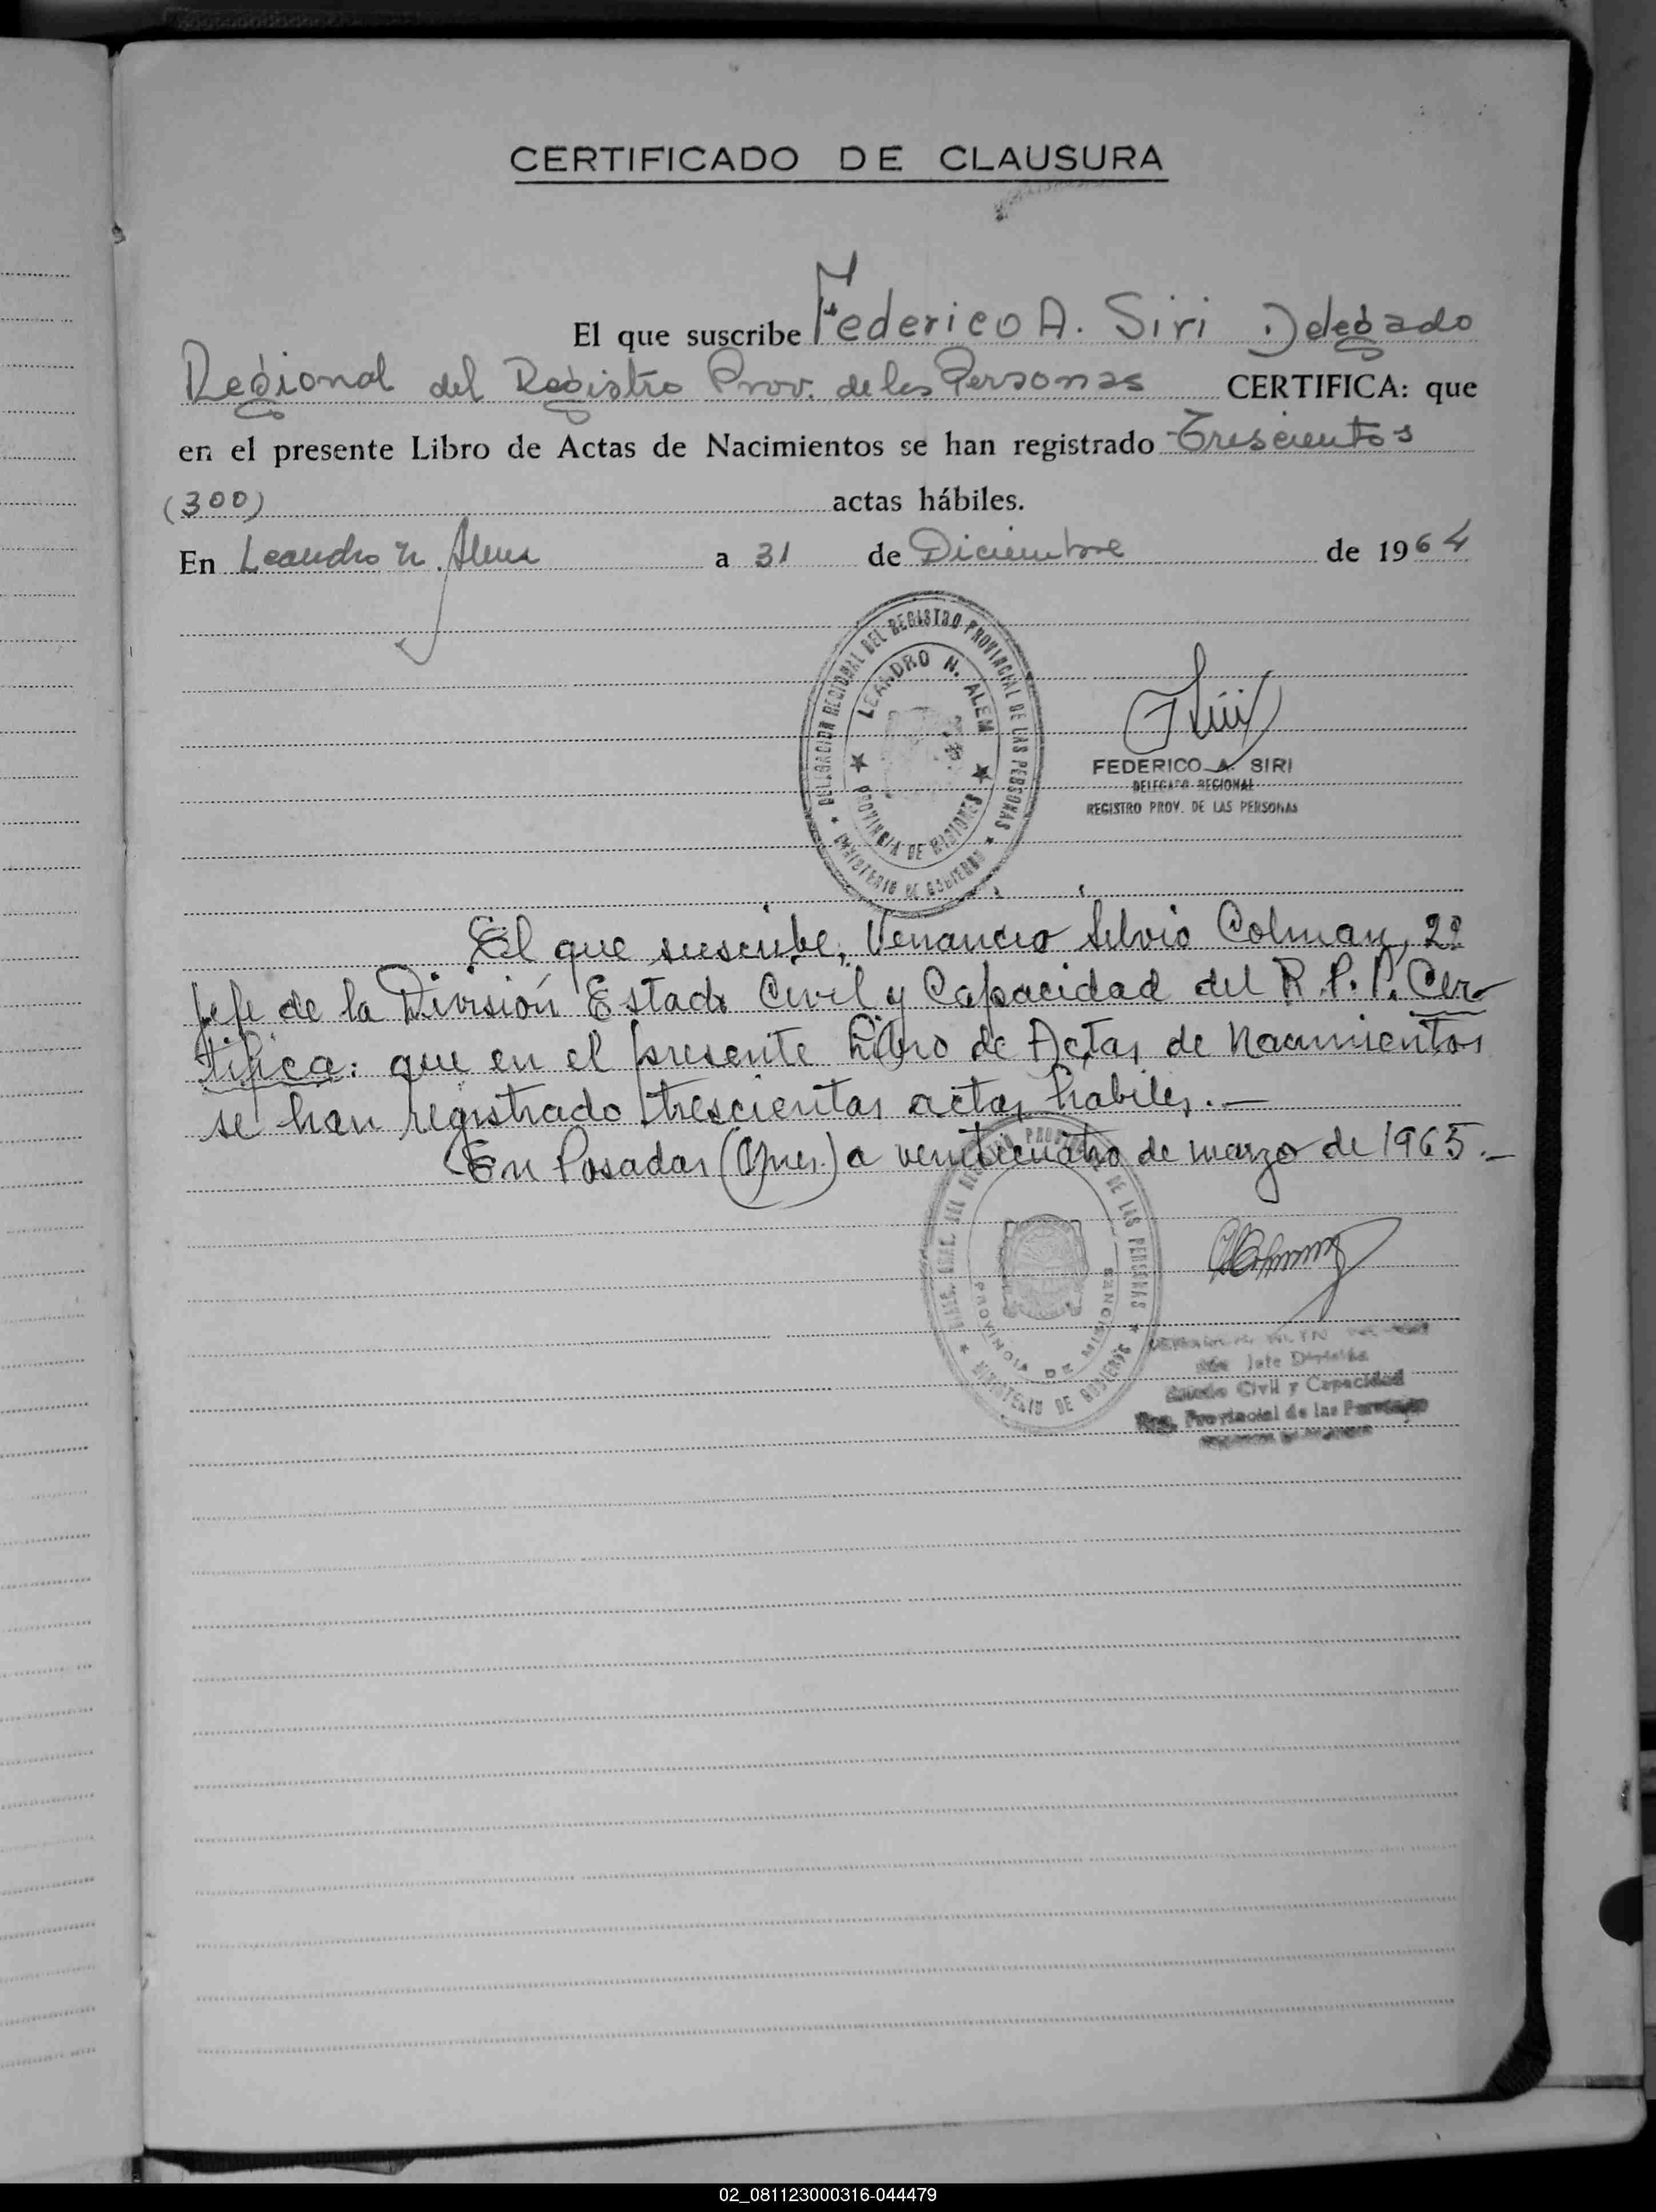 CERTIFICADO DE CLAUSURA
El que suscribe Federico A. Siri Delegado
Regional del Registro Prov. de las Personas CERTIFICA: que
en el presente Libro de Actas de Nacimientos se han registrado Trescientos
(300) actas hábiles.
En Leandro N. Alem a 31 de Diciembre de 1964
DELEGACION REGIONAL DEL REGISTRO PROVINCIAL DE LAS PERSONAS
LEANDRO N. ALEM
PROVINCIA DE MISIONES
MINISTERIO DE GOBIERNO
FEDERICO A. SIRI
DELEGADO REGIONAL
REGISTRO PROV. DE LAS PERSONAS
El que suscribe, Venancio Silvio Colman, 2º
Jefe de la División Estado Civil y Capacidad del R.P.P. Cer-
tifica: que en el presente Libro de Actas de Nacimientos
se han registrado trescientas actas habiles.—
En Posadas (Mnes.) a venticuatro de marzo de 1965.—
DEL PROVINCIAL DE LAS PERSONAS
PROVINCIA DE MISIONES
MINISTERIO DE GOBIERNO
Jefe División
Estado Civil y Capacidad
Reg. Provincial de las Personas
02_081123000316-044479